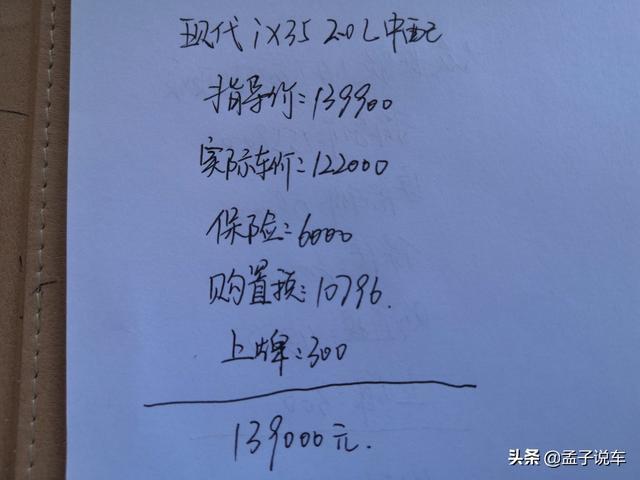 现代ix35 2.0L中配
指导价:139900
实际车价:122000
保险:6000
购置预:10796.
上牌:300
139000元.
头条 @孟子说车